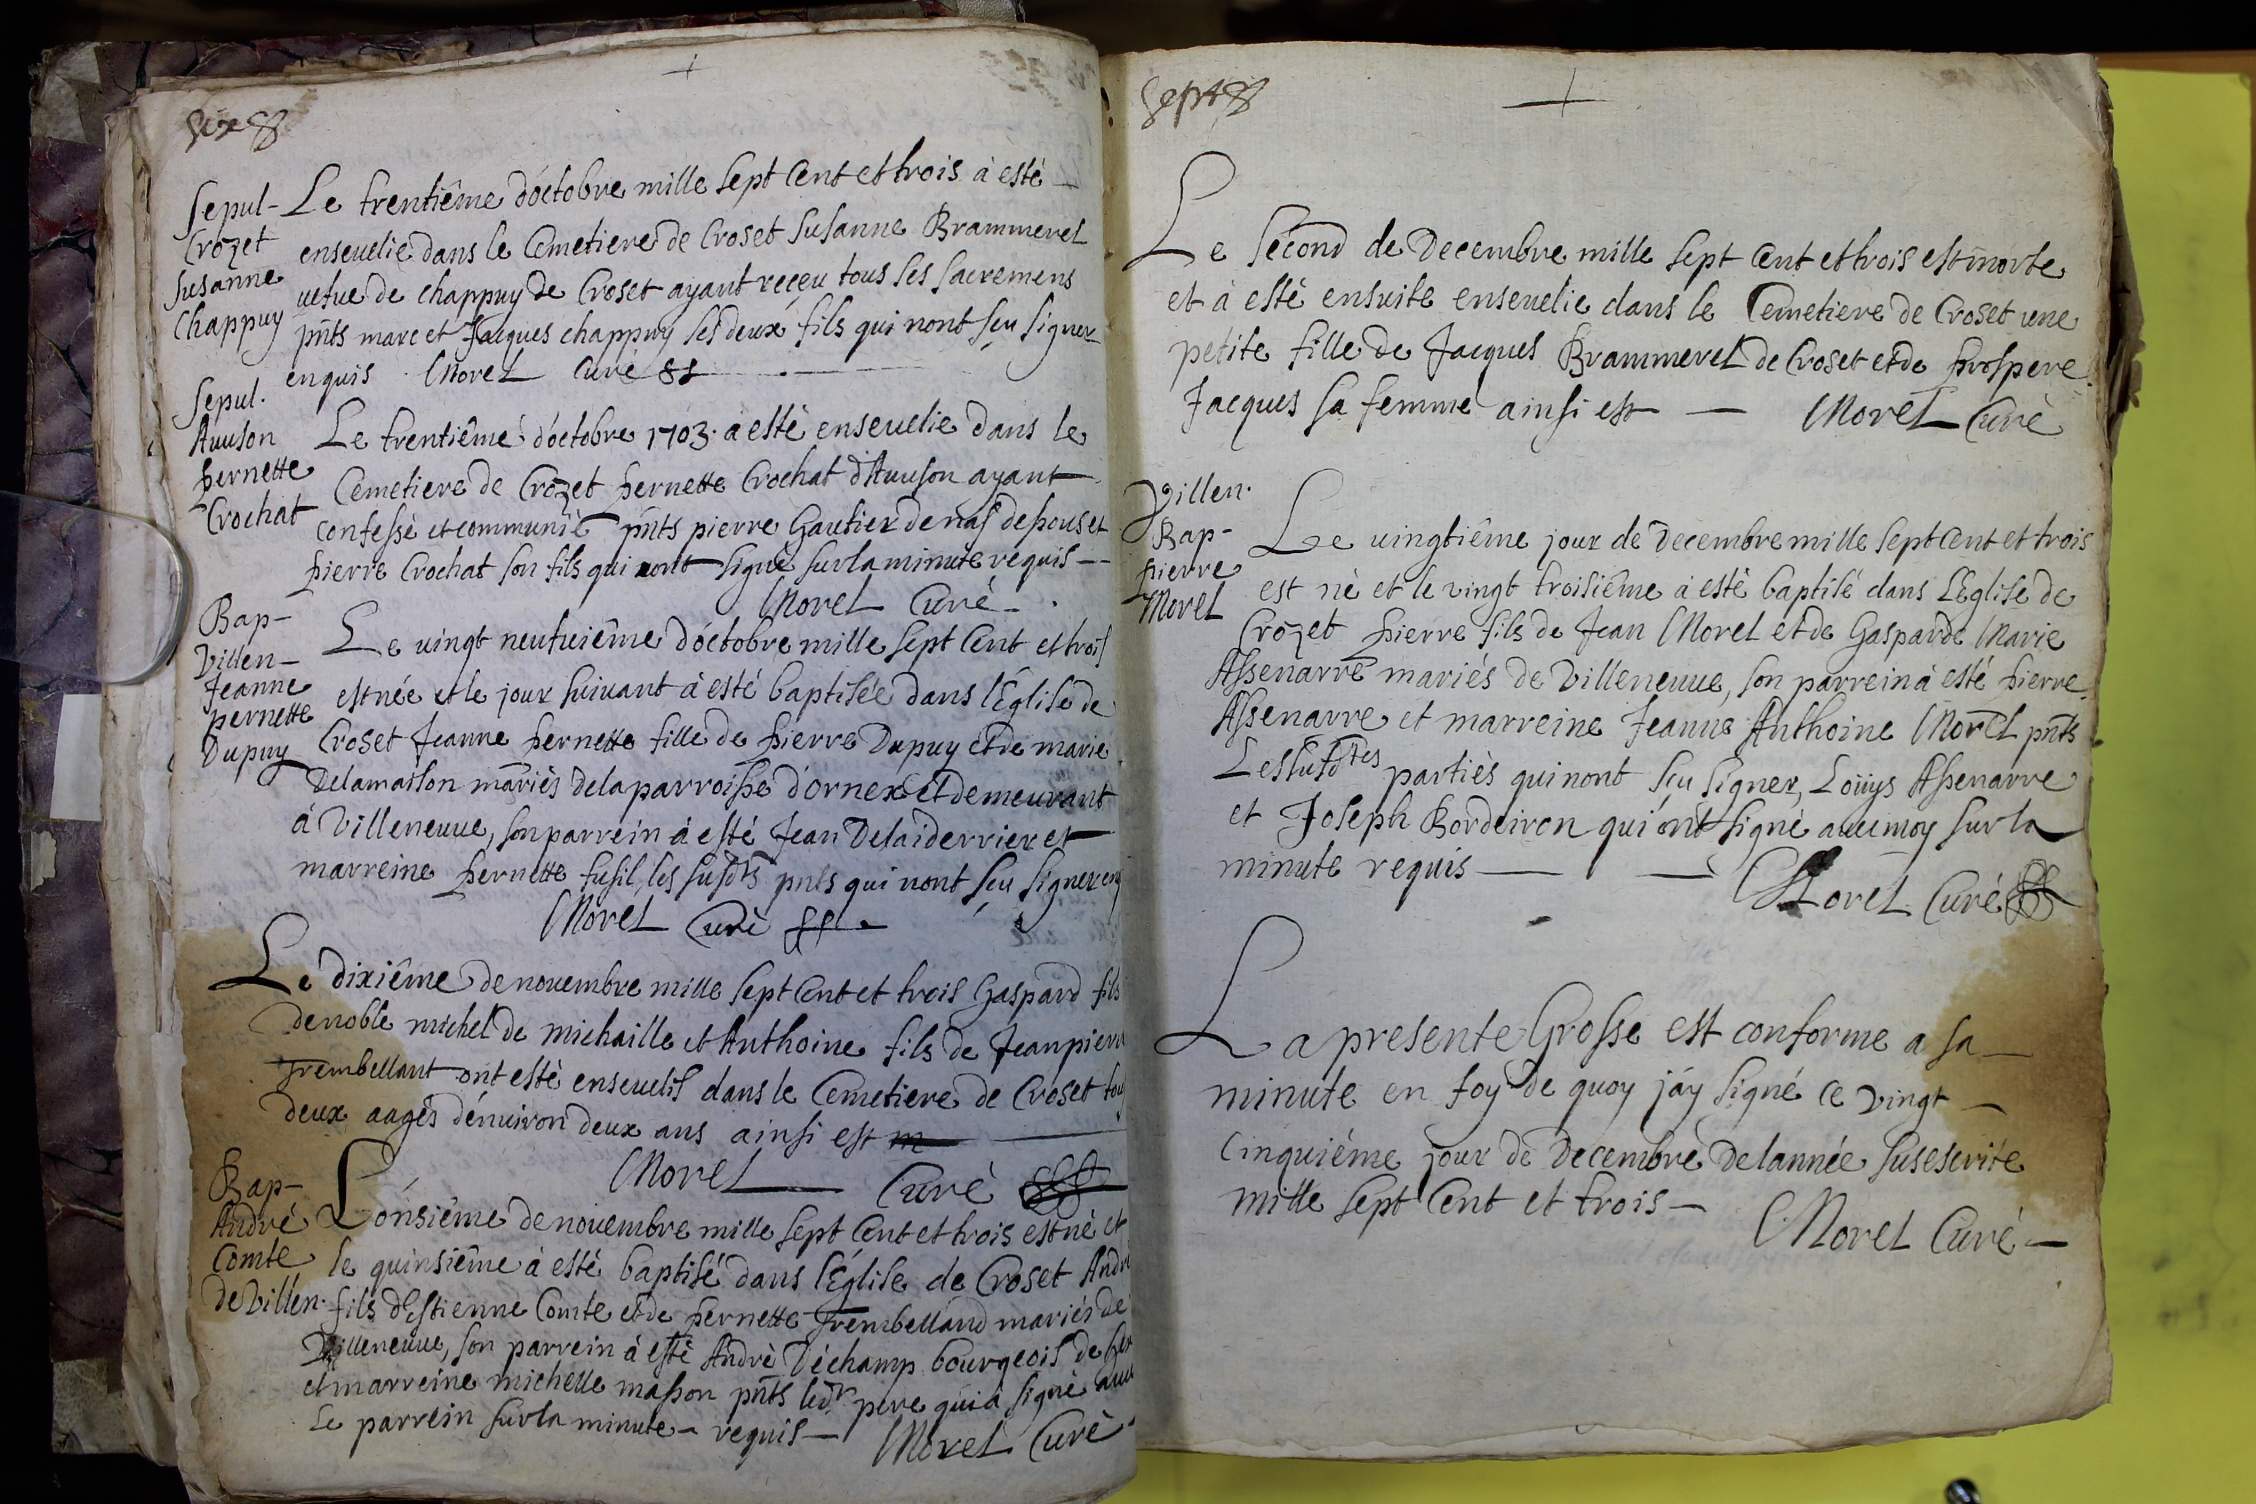 six
Sepul-
Crozet
Susanne
Chappuy
Le trentième d'octobre mille sept cent et trois à esté
enseuelie dans le Cemetiere de Croset Susanne Brammerel
uefue de chappuy de Croset ayant reçeu tous ses sacremens
pnts marc et Jacques chappuy ses deux fils qui nont sçu signer
enquis Morel Curé
Sepul.
Auuson
pernette
Crochat
Le trentième d'octobre 1703. à esté enseuelie dans le
Cemetiere de Crozet pernette Crochat d'Auuson ayant
confessè et communiè pnts pierre Gautier de nas depouset
pierre Crochat son fils qui nont signè sur la minute requis
Morel Curè
Bap-
Villen-
Jeanne
pernette
Dupuy
Le uingt neufuième d'octobre mille sept Cent et trois
est née et le jour suiuant à esté baptisée dans l'Église de
Croset Jeanne pernette fille de pierre Dupuy et de marie
Delamaison mariès de la parroisse d'ornex et demeurant
à Villeneuue, son parrein à esté Jean Delaiderrier et
marreine pernette fusil, les susdts pnts qui nont sçu signer enq
Morel Curè
Le dixième de nouembre mille sept Cent et trois Gaspard fils
de noble michel de michaille et Anthoine fils de Jean pierre
Trembellant ont esté enseuelis dans le Cemetiere de Croset tous
deux aagès d'enuiron deux ans ainsi est
Morel Curè
Bap-
Andrè
Comte
de Villen.
L'onsième de nouembre mille sept Cent et trois est nè et
le quinsième à esté baptisé dans l'Église de Croset André
fils d'Estienne Comte et de pernette Trembelland mariés de
Villeneuue, son parrein à esté Andrè Dechamp bourgeois de Gex
et marreine michelle masson pnts ledt pere qui à signè auec
le parrein sur la minute requis Morel Curè
sept
Le second de Decembre mille sept Cent et trois est morte
et à estè ensuite enseuelie dans le Cemetiere de Croset une
petite fille de Jacques Brammerel de Croset et de prospere
Jacques sa femme ainsi est Morel Curè
Villen.
Bap-
pierre
Morel
Le uingtième jour de Decembre mille sept Cent et trois
est nè et le vingt troisième à esté baptisé dans l'Eglise de
Crozet pierre fils de Jean Morel et de Gasparde Marie
Assenarre mariés de Villeneuue, son parrein à esté pierre
Assenarre et marreine Jeanne Anthoine Morel pnts
Les susdtes partiès qui nont sçu signer, Loüys Assenarre
et Joseph Bordeiron qui ont signè auec moy sur la
minute requis
Morel Curé
La presente Grosse est conforme a sa
minute en foy de quoy j'ay signé ce vingt
Cinquiéme jour de Decembre de lannée susescrite
mille sept Cent et trois
Morel Curé